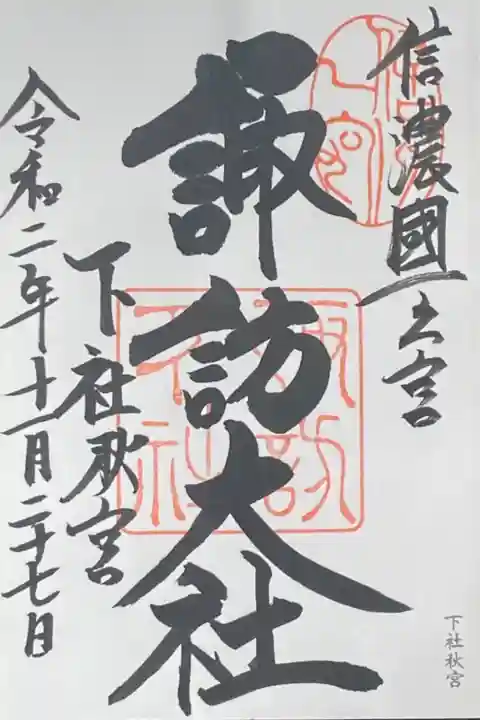 信濃國一之宮
諏訪大社
下社秋宮
令和二年十一月二十七日
下社秋宮